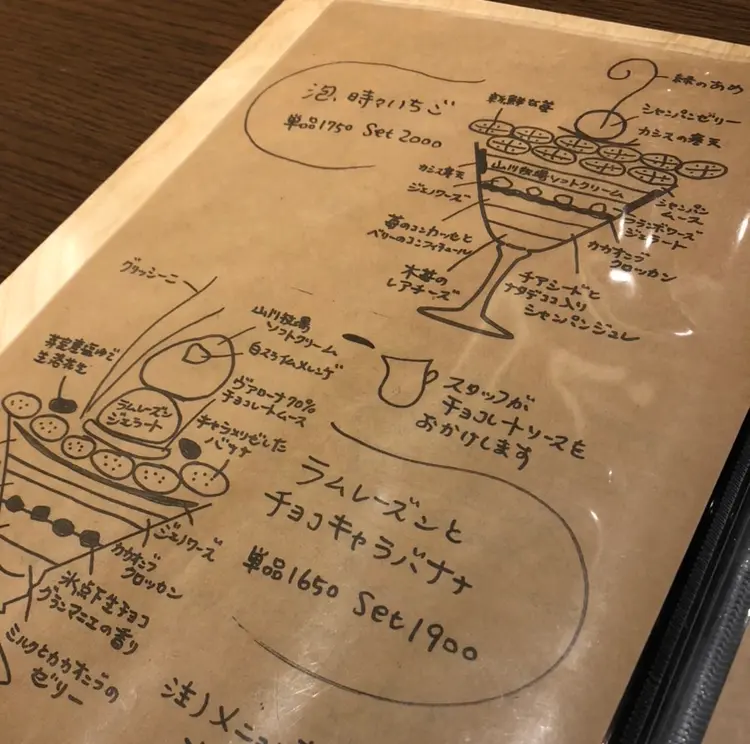 泡、時々いちご
単品1750 Set 2000
緑のあめ
シャンパンゼリー
カシスの寒天
新鮮な苺
山川牧場ソフトクリーム
カシス寒天
ジェノワーズ
シャンパン
ムース
フランボワーズ
ジェラート
カカオニブ
クロッカン
苺のコンカッセと
ベリーのコンフィチュール
木苺の
レアチーズ
チアシードと
ナタデココ入り
シャンパンジュレ
グリッシーニ
山川牧場
ソフトクリーム
白スライムメレンゲ
生落花生
ラムレーズン
ジェラート
ヴァローナ70%
チョコレートムース
キャラメリゼした
バナナ
スタッフが
チョコレートソースを
おかけします
ラムレーズンと
チョコキャラバナナ
単品1650 Set 1900
ジェノワーズ
カカオニブ
クロッカン
氷点下生チョコ
グランマニエの香り
ミルクとカカオニブの
ゼリー
注)メニュー